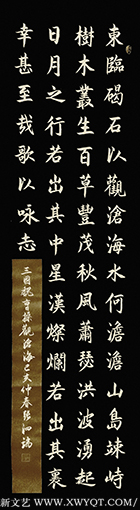 東臨碣石以觀滄海水何澹澹山島竦峙
樹木叢生百草豐茂秋風蕭瑟洪波湧起
日月之行若出其中星漢燦爛若出其裏
幸甚至哉歌以咏志
三國魏曹操觀滄海己亥仲春張泗
新文艺 WWW.XWYOT.COM